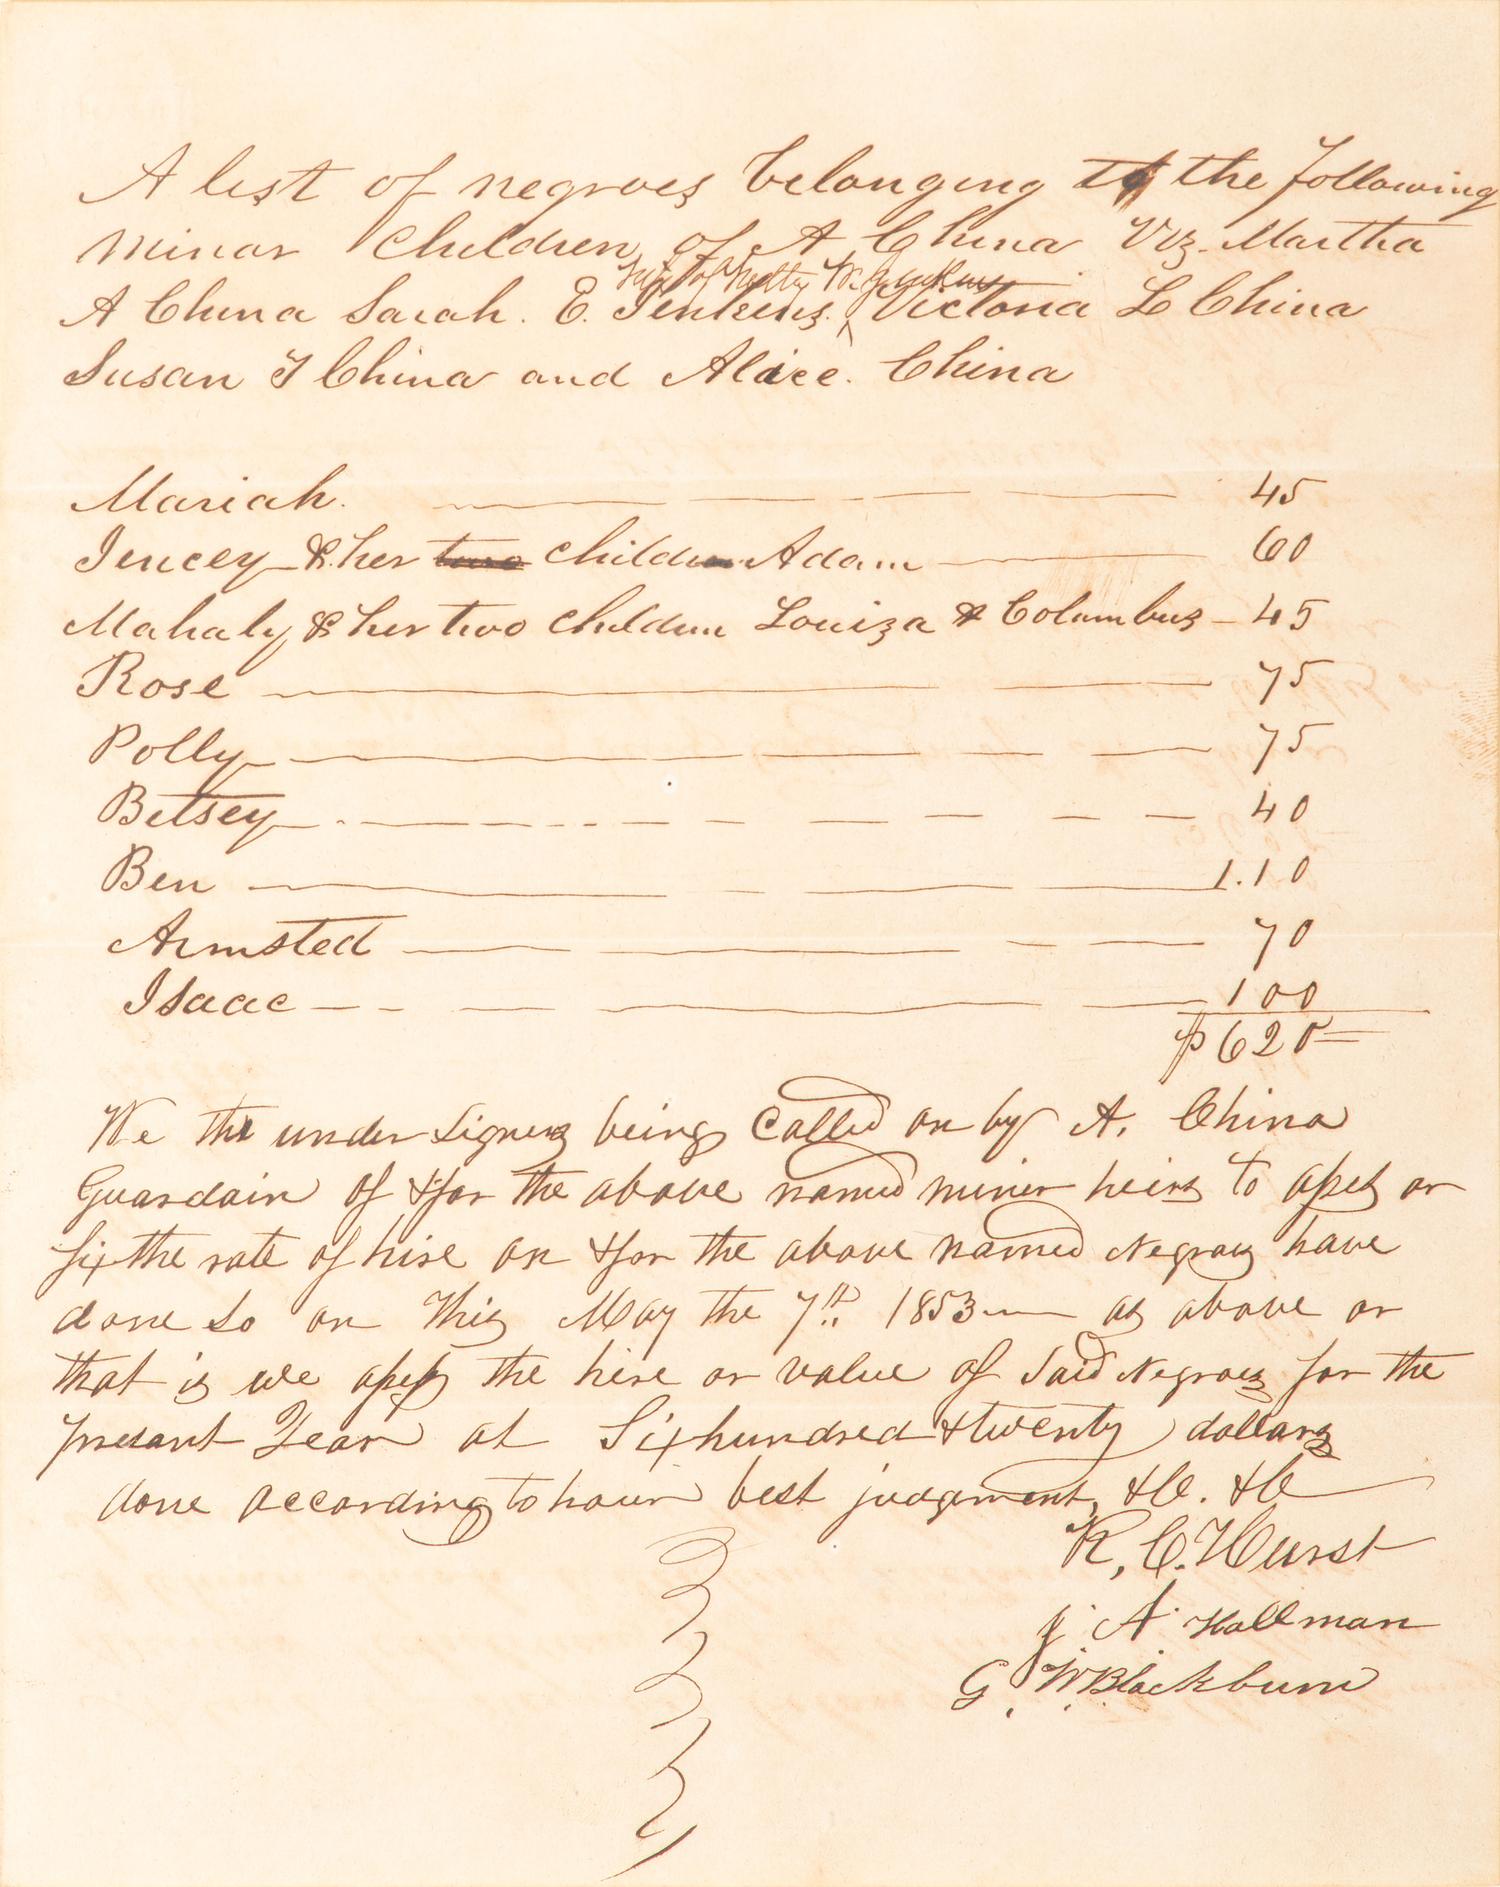 A list of negroes belonging to the following
Minor Children of A China Viz. Martha
Wife of W. Jenkins
A China Sarah. E. Jenkins. ^ Victoria L China
Susan T China and Alice. China
Mariah. 45
Jencey & her two children Adam 60
Mahaly & her two children Louiza & Columbus 45
Rose 75
Polly 75
Betsey 40
Ben 1.10
Armsted 70
Isaac 100
$620
We the under signers being Called on by A. China
Guardain of & for the above named miner heirs to apes or
fix the rate of hire on & for the above named Negroes have
done so on This May the 7th 1853 as above or
that is we apess the hire or value of Said Negroes for the
presant Year at Six hundred & twenty dollars
done according to hour best judgment, &C. &C
R, C. Hurst
J A Hallman
G. W Blackburn